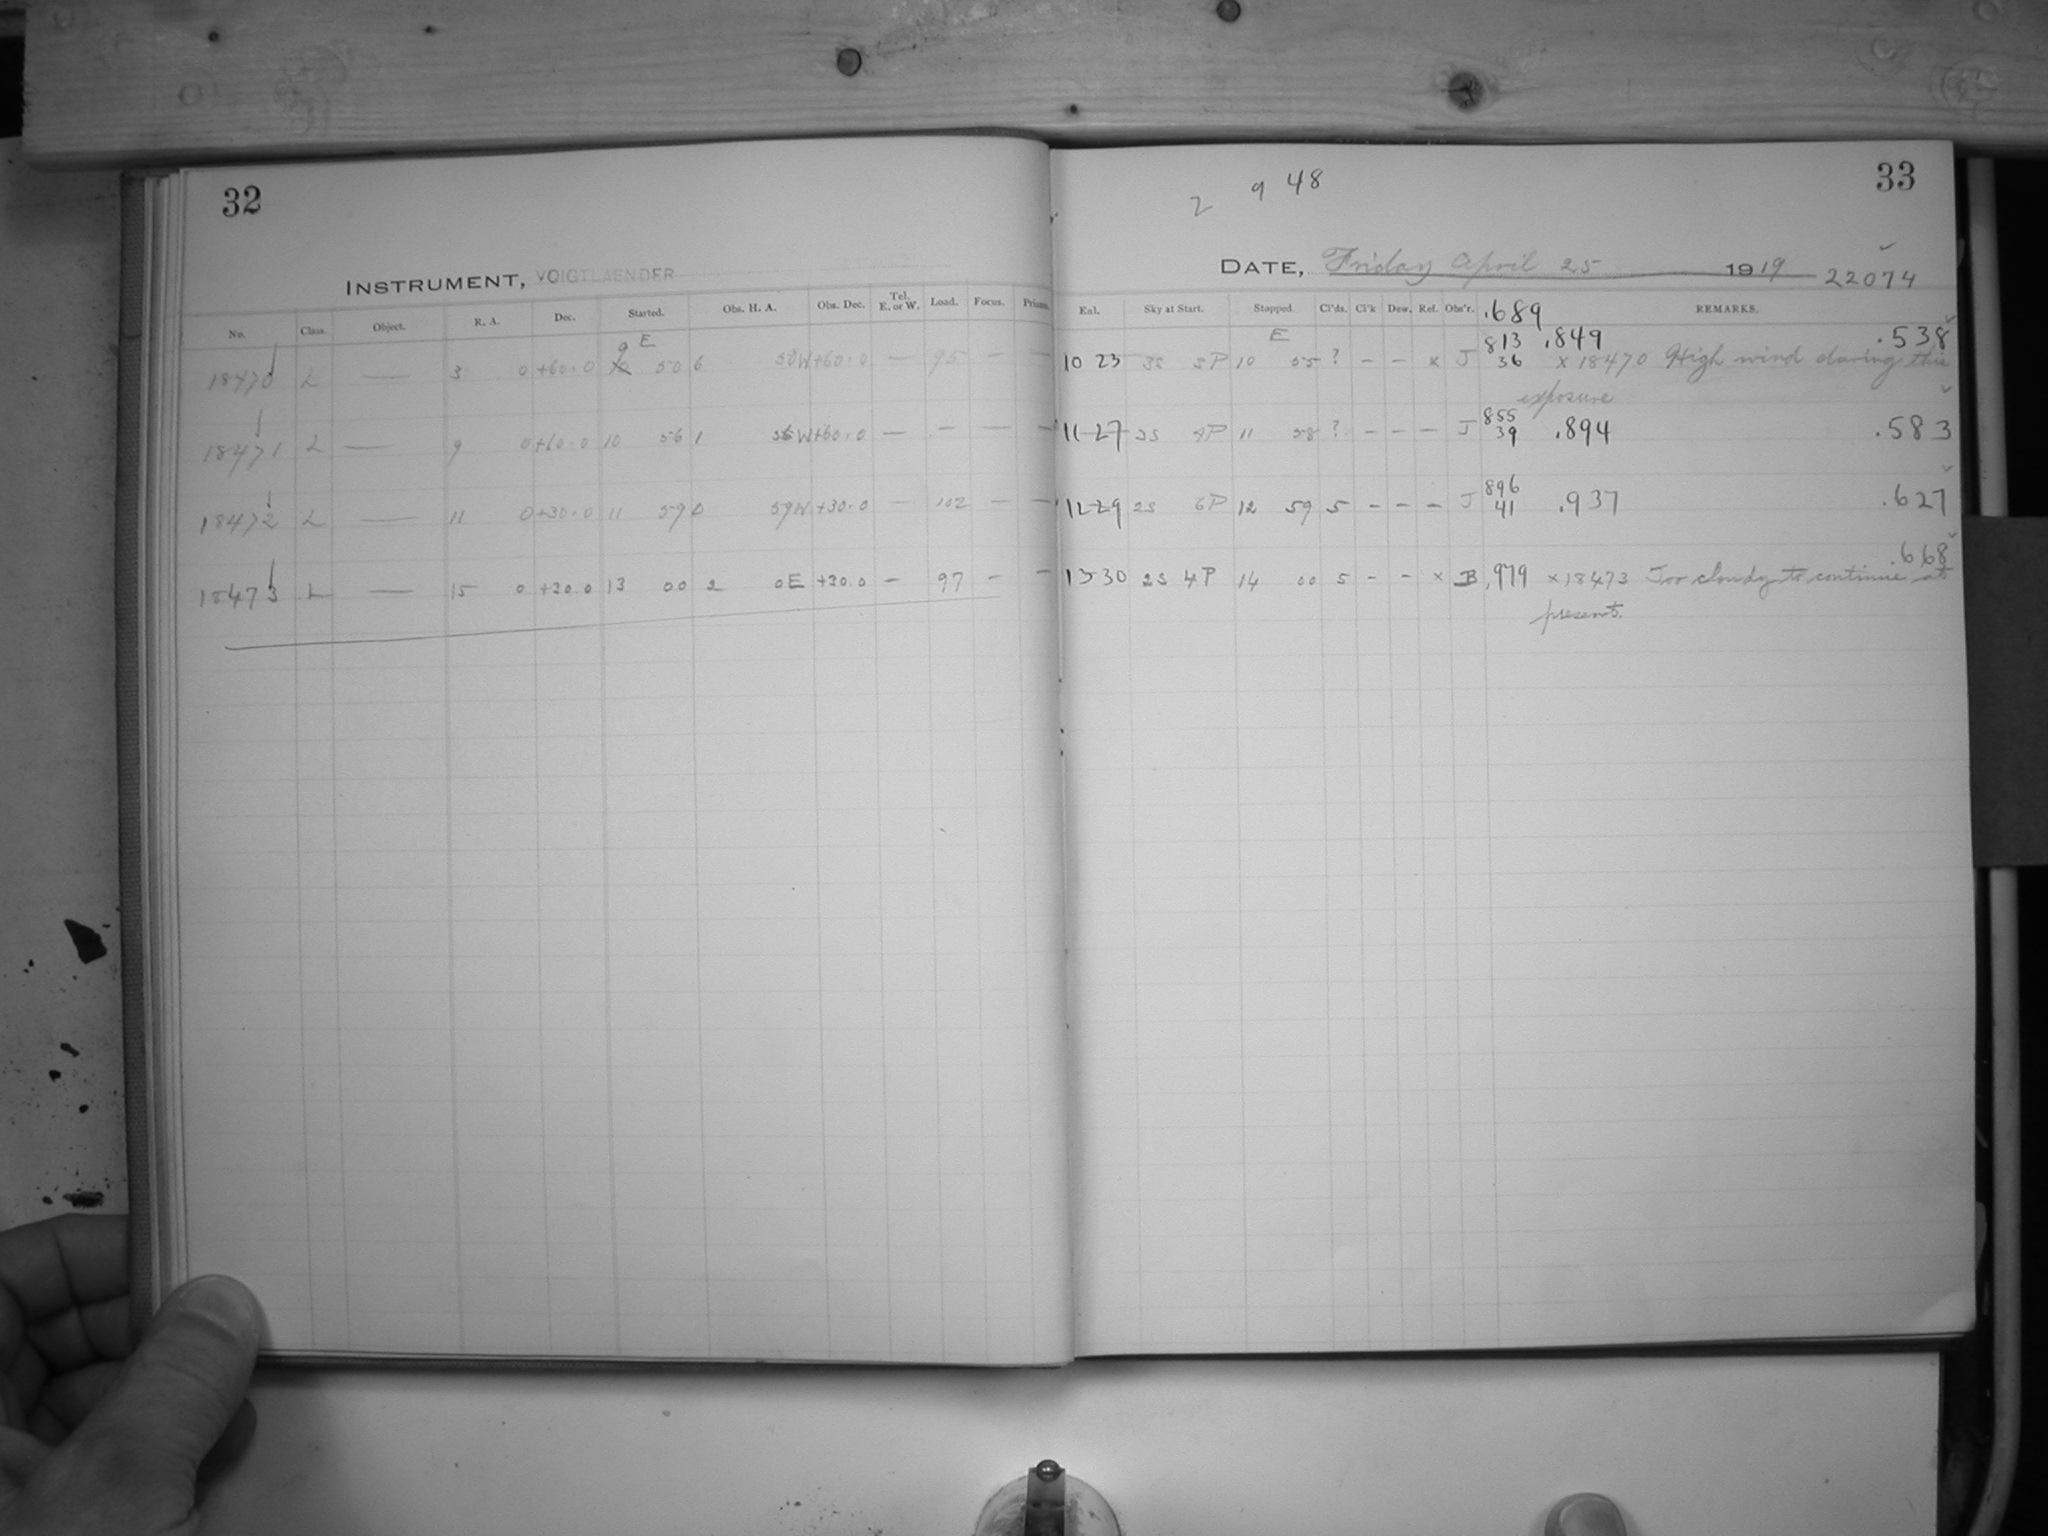 32
INSTRUMENT, VOIGTLAENDER
No. Class. Object. R. A. Dec. Started. Obs. H. A. Obs. Dec. Tel. E. or W. Load. Focus. Prism.
9 E
18470 L — 3 0 +60.0 50 6 50W +60.0 — 95 — —
18471 L — 9 0 +60.0 10 56 1 56W +60.0 — — — —
18472 L — 11 0 +30.0 11 59 0 59W +30.0 — 102 — —
18473 L — 15 0 +30.0 13 00 2 0E +30.0 — 97 — —
33
2 9 48
DATE, Friday April 25 1919 22074
Ext. Sky at Start. Stopped. Cl'ds. Cl'k Dew. Ref. Obs'r. REMARKS.
.689
E 813 .849 .538
10 23 3S 5P 10 55 ? — — x J 36 x 18470 High wind during this
exposure
855
11-27 2S 4P 11 58 ? — — — J 39 .894 .583
896
12-29 2S 6P 12 59 5 — — — J 41 .937 .627
.668
13-30 2S 4P 14 00 5 — — x B .979 x 18473 Too cloudy to continue at
present.